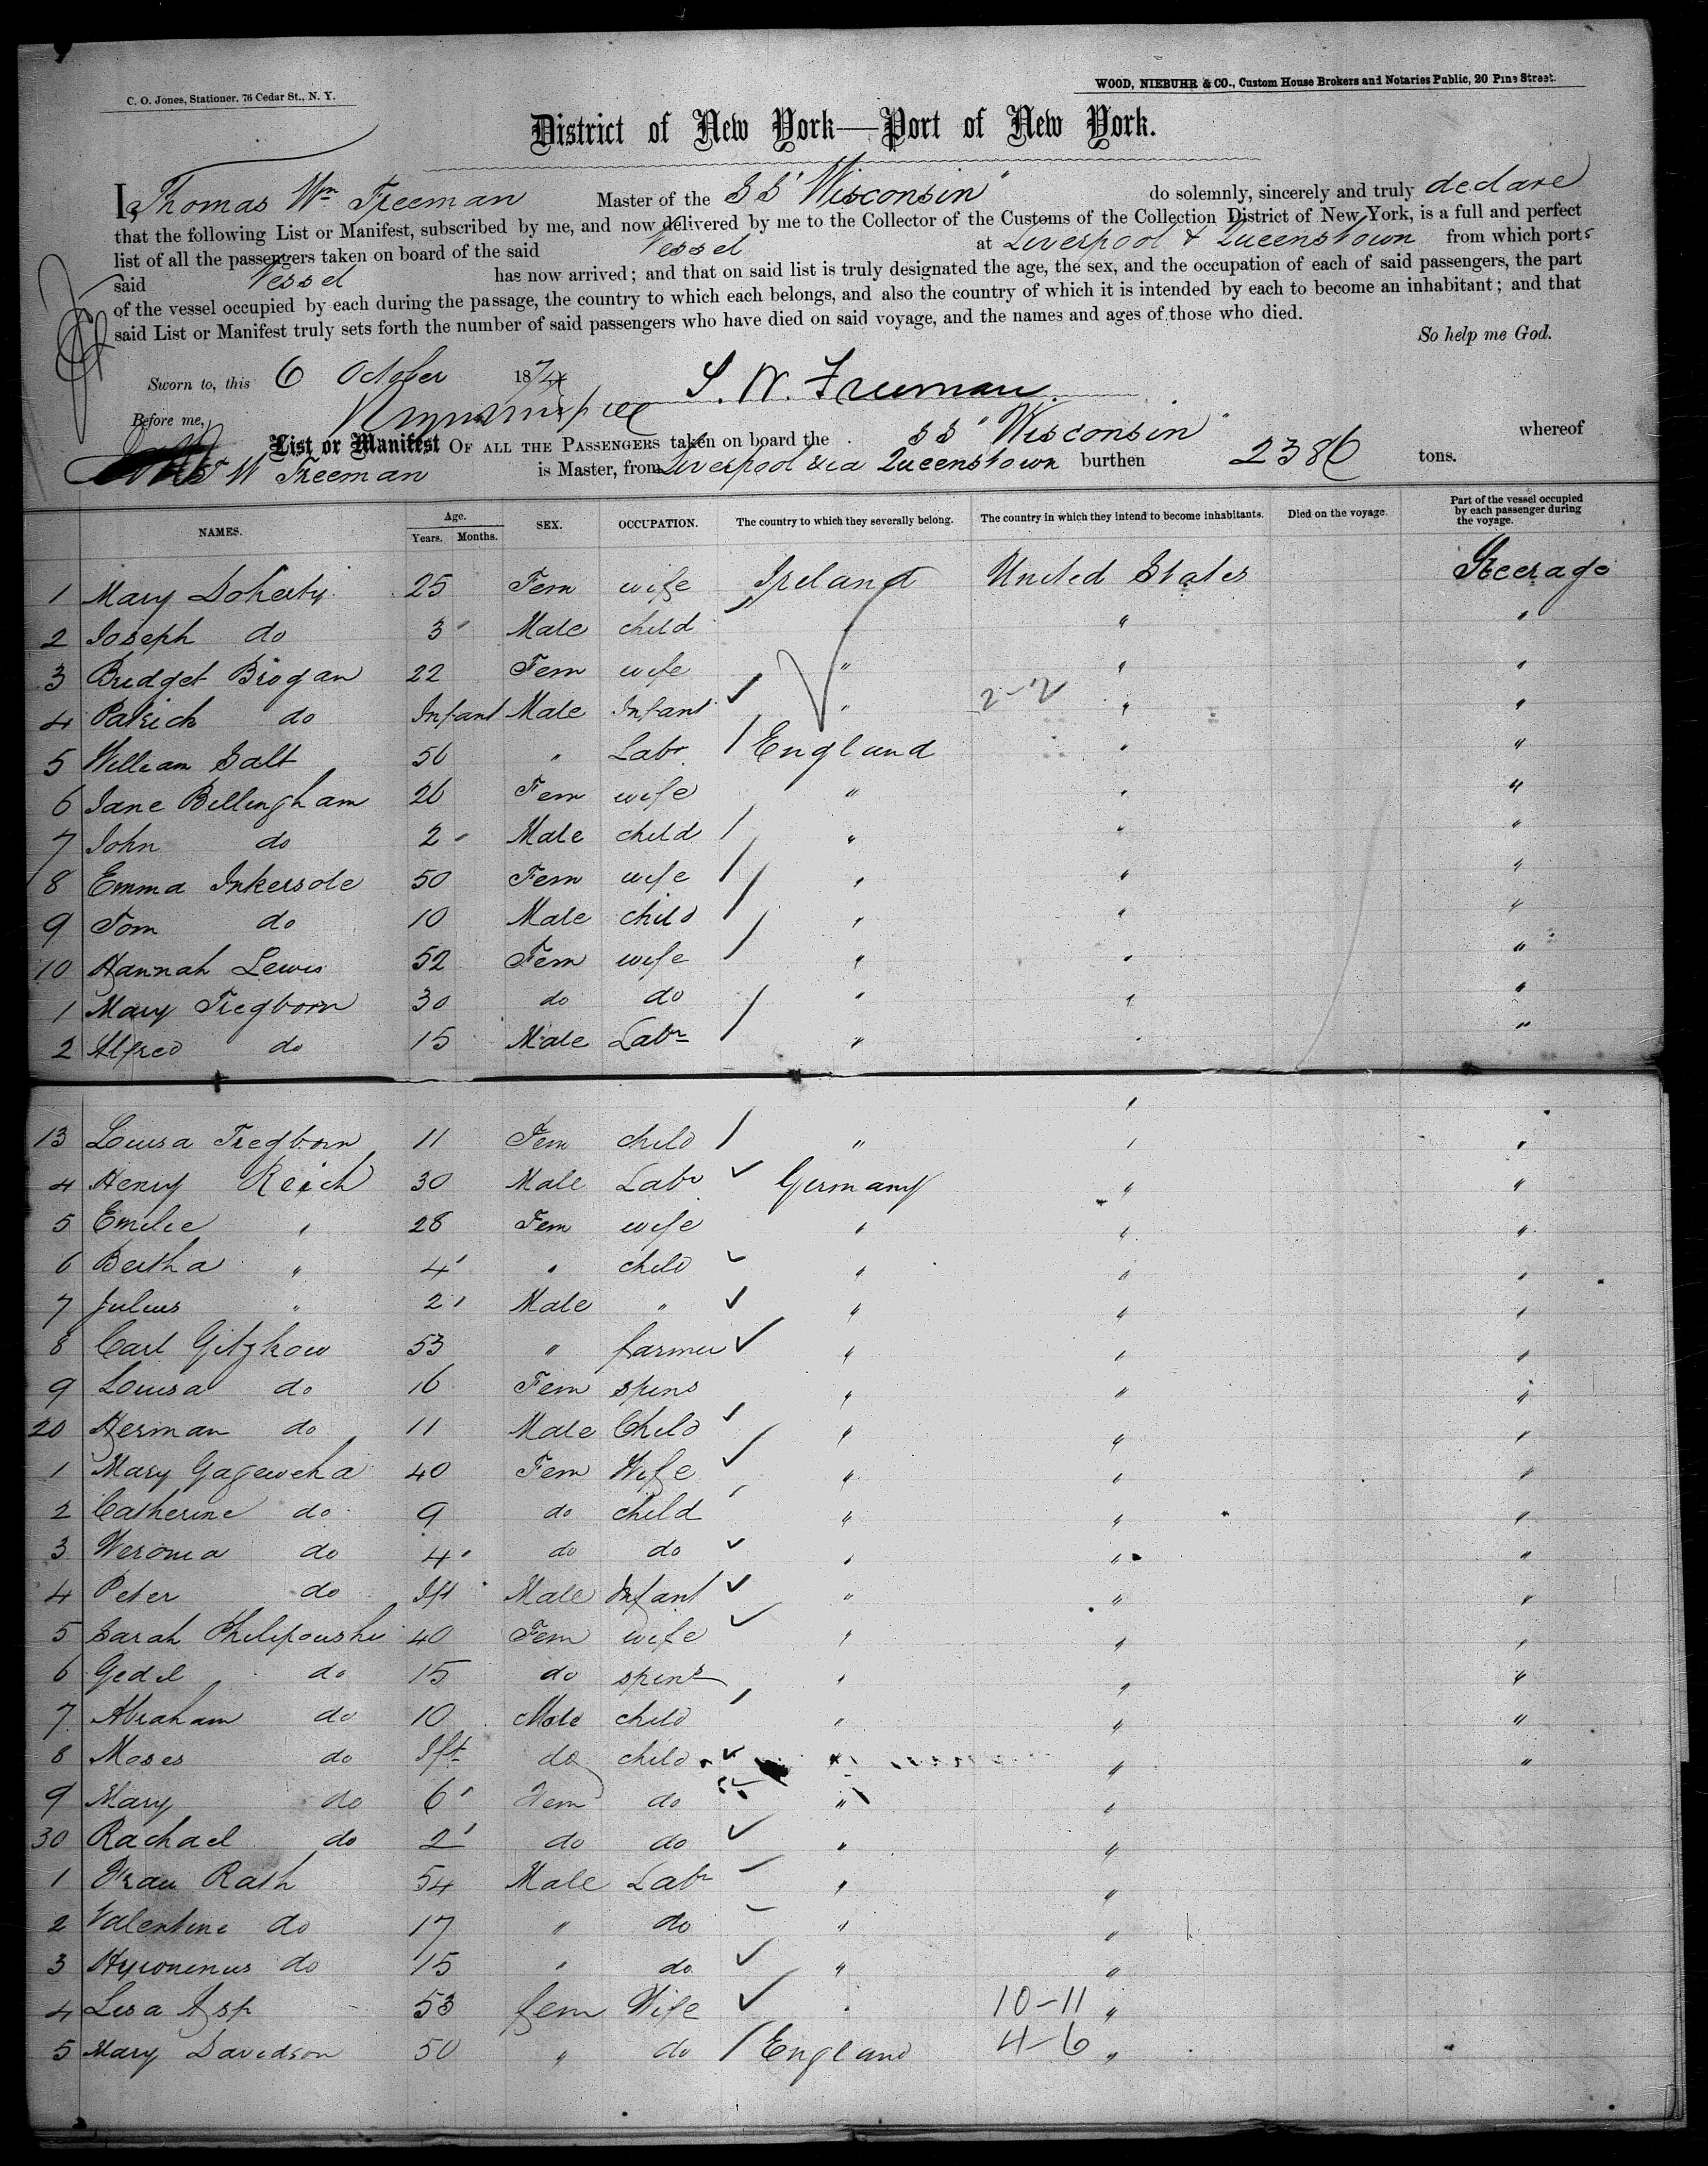 C. O. Jones, Stationer, 76 Cedar St., N. Y.
WOOD, NIEBUHR & CO., Custom House Brokers and Notaries Public, 20 Pine Street.
District of New York—Port of New York.
I, Thomas Wm Freeman Master of the S S "Wisconsin" do solemnly, sincerely and truly declare
that the following List or Manifest, subscribed by me, and now delivered by me to the Collector of the Customs of the Collection District of New York, is a full and perfect
list of all the passengers taken on board of the said Vessel at Liverpool & Queenstown from which ports
said Vessel has now arrived; and that on said list is truly designated the age, the sex, and the occupation of each of said passengers, the part
of the vessel occupied by each during the passage, the country to which each belongs, and also the country of which it is intended by each to become an inhabitant; and that
said List or Manifest truly sets forth the number of said passengers who have died on said voyage, and the names and ages of those who died.
So help me God.
Sworn to, this 6 October 1874 T. W. Freeman.
Before me,
List or Manifest OF ALL THE PASSENGERS taken on board the S S "Wisconsin" whereof
T W Freeman is Master, from Liverpool & Queenstown burthen 2386 tons.
NAMES. Age. Years. Months. SEX. OCCUPATION. The country to which they severally belong. The country in which they intend to become inhabitants. Died on the voyage. Part of the vessel occupied by each passenger during the voyage.
1 Mary Doherty 25 Fem wife Ireland United States Steerage
2 Joseph do 3 Male child " " "
3 Bridget Brogan 22 Fem wife " " "
4 Patrick do Infant Male Infant " 2-2 " "
5 William Salt 56 " Labr England " "
6 Jane Billingham 26 Fem wife " " "
7 John do 2 Male child " " "
8 Emma Inkersole 50 Fem wife " " "
9 Tom do 10 Male child " " "
10 Hannah Lewis 52 Fem wife " " "
1 Mary Tregborn 30 do do " " "
2 Alfred do 15 Male Labr " " "
13 Louisa Tregborn 11 Fem child " " "
4 Henry Reich 30 Male Labr Germany " "
5 Emilie " 28 Fem wife " " "
6 Bertha " 4 " child " " "
7 Julius " 2 Male " " " "
8 Carl Gitzkow 53 " farmer " " "
9 Louisa do 16 Fem spins " " "
20 Herman do 11 Male Child " " "
1 Mary Gagewcha 40 Fem Wife " " "
2 Catherine do 9 do child " " "
3 Weronia do 4 do do " " "
4 Peter do Ift Male Infant " " "
5 Sarah Philipoushi 40 Fem wife " " "
6 Gedel do 15 do spins " " "
7 Abraham do 10 Male child " " "
8 Moses do Ift do child " " "
9 Mary do 6 Fem do " "
30 Rachael do 2 do do " "
1 Frau Rath 54 Male Labr " "
2 Valentine do 17 " do " "
3 Hyronemus do 15 " do " "
4 Lisa Asp 53 fem Wife " 10-11 "
5 Mary Davidson 50 " do England 4-6 "